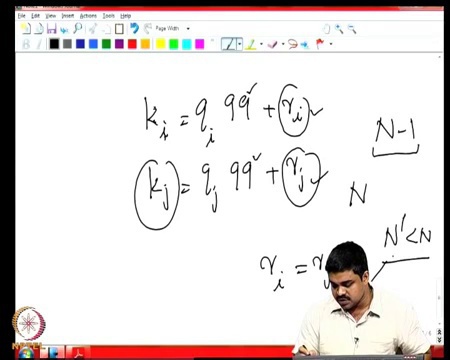 File Edit View Insert Actions Tools Help
Page Width
k_i = q_i 99 + r_i
N-1
k_j = q_j 99 + r_j
N
N' < N
r_i = r